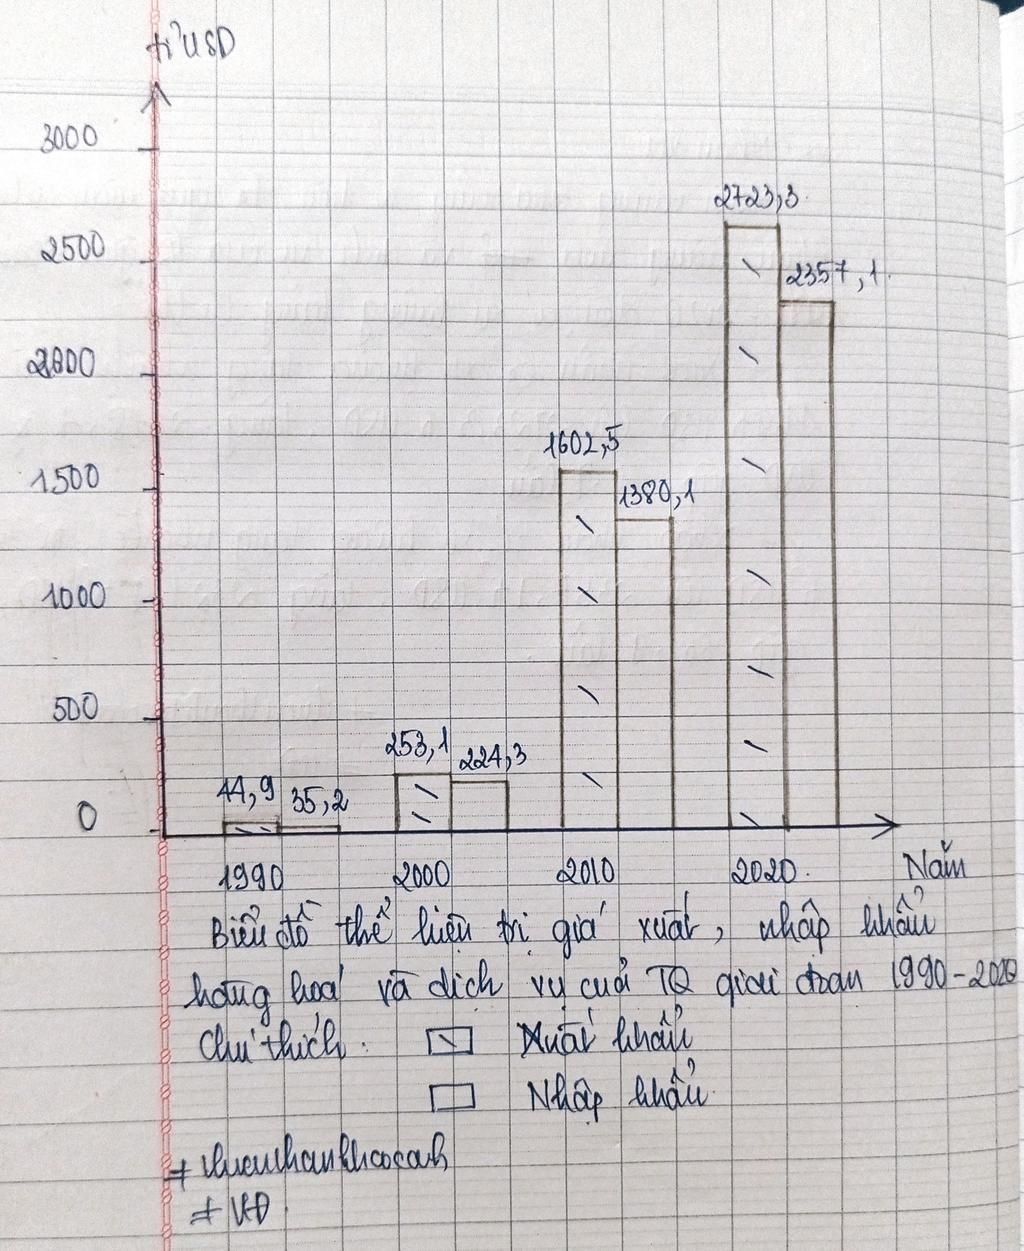 tỉ USD
3000
2500
2000
1500
1000
500
0
44,9
35,2
253,1
224,3
1602,5
1380,1
2723,3
2357,1
1990
2000
2010
2020
Năm
Biểu đồ thể hiện trị giá xuất, nhập khẩu
hàng hoá và dịch vụ của TQ giai đoạn 1990-2020
Chú thích:
Xuất khẩu
Nhập khẩu